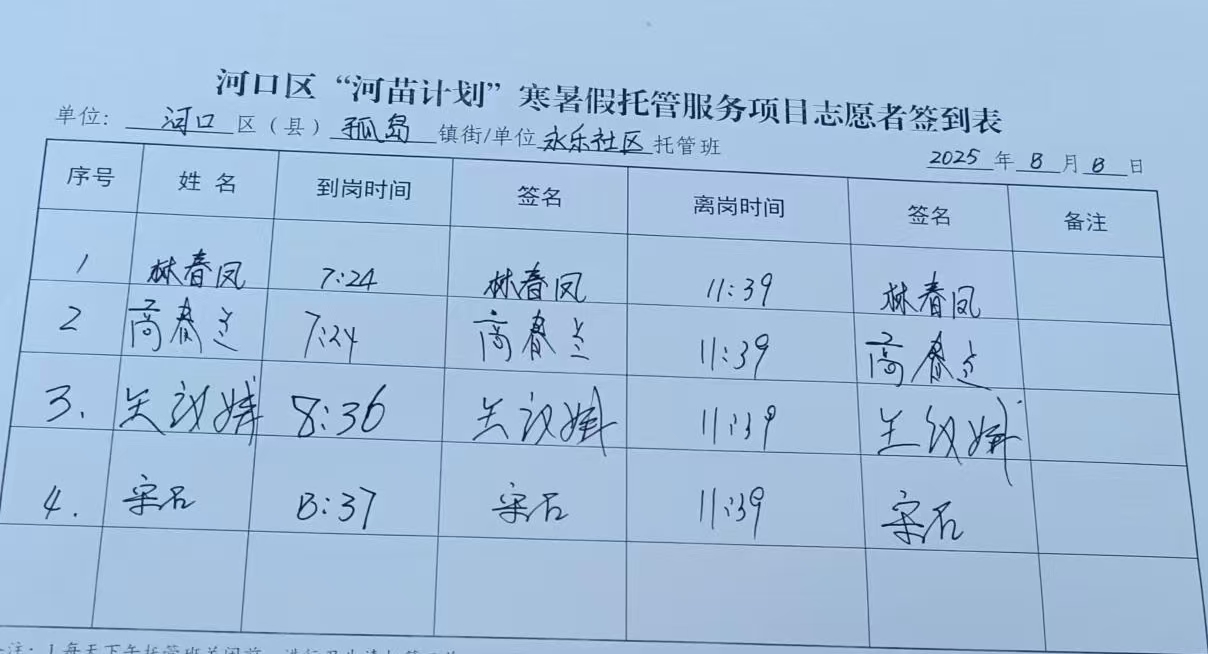 河口区“河苗计划”寒暑假托管服务项目志愿者签到表
单位：河口区（县）孤岛镇街/单位永乐社区托管班 2025年8月8日
序号 姓名 到岗时间 签名 离岗时间 签名 备注
1 林春凤 7:24 林春凤 11:39 林春凤
2 高春兰 7:24 高春兰 11:39 高春兰
3. 8:36 11:39
4. 宋石 8:37 宋石 11:39 宋石
注：1.每天下午托管班关闭前